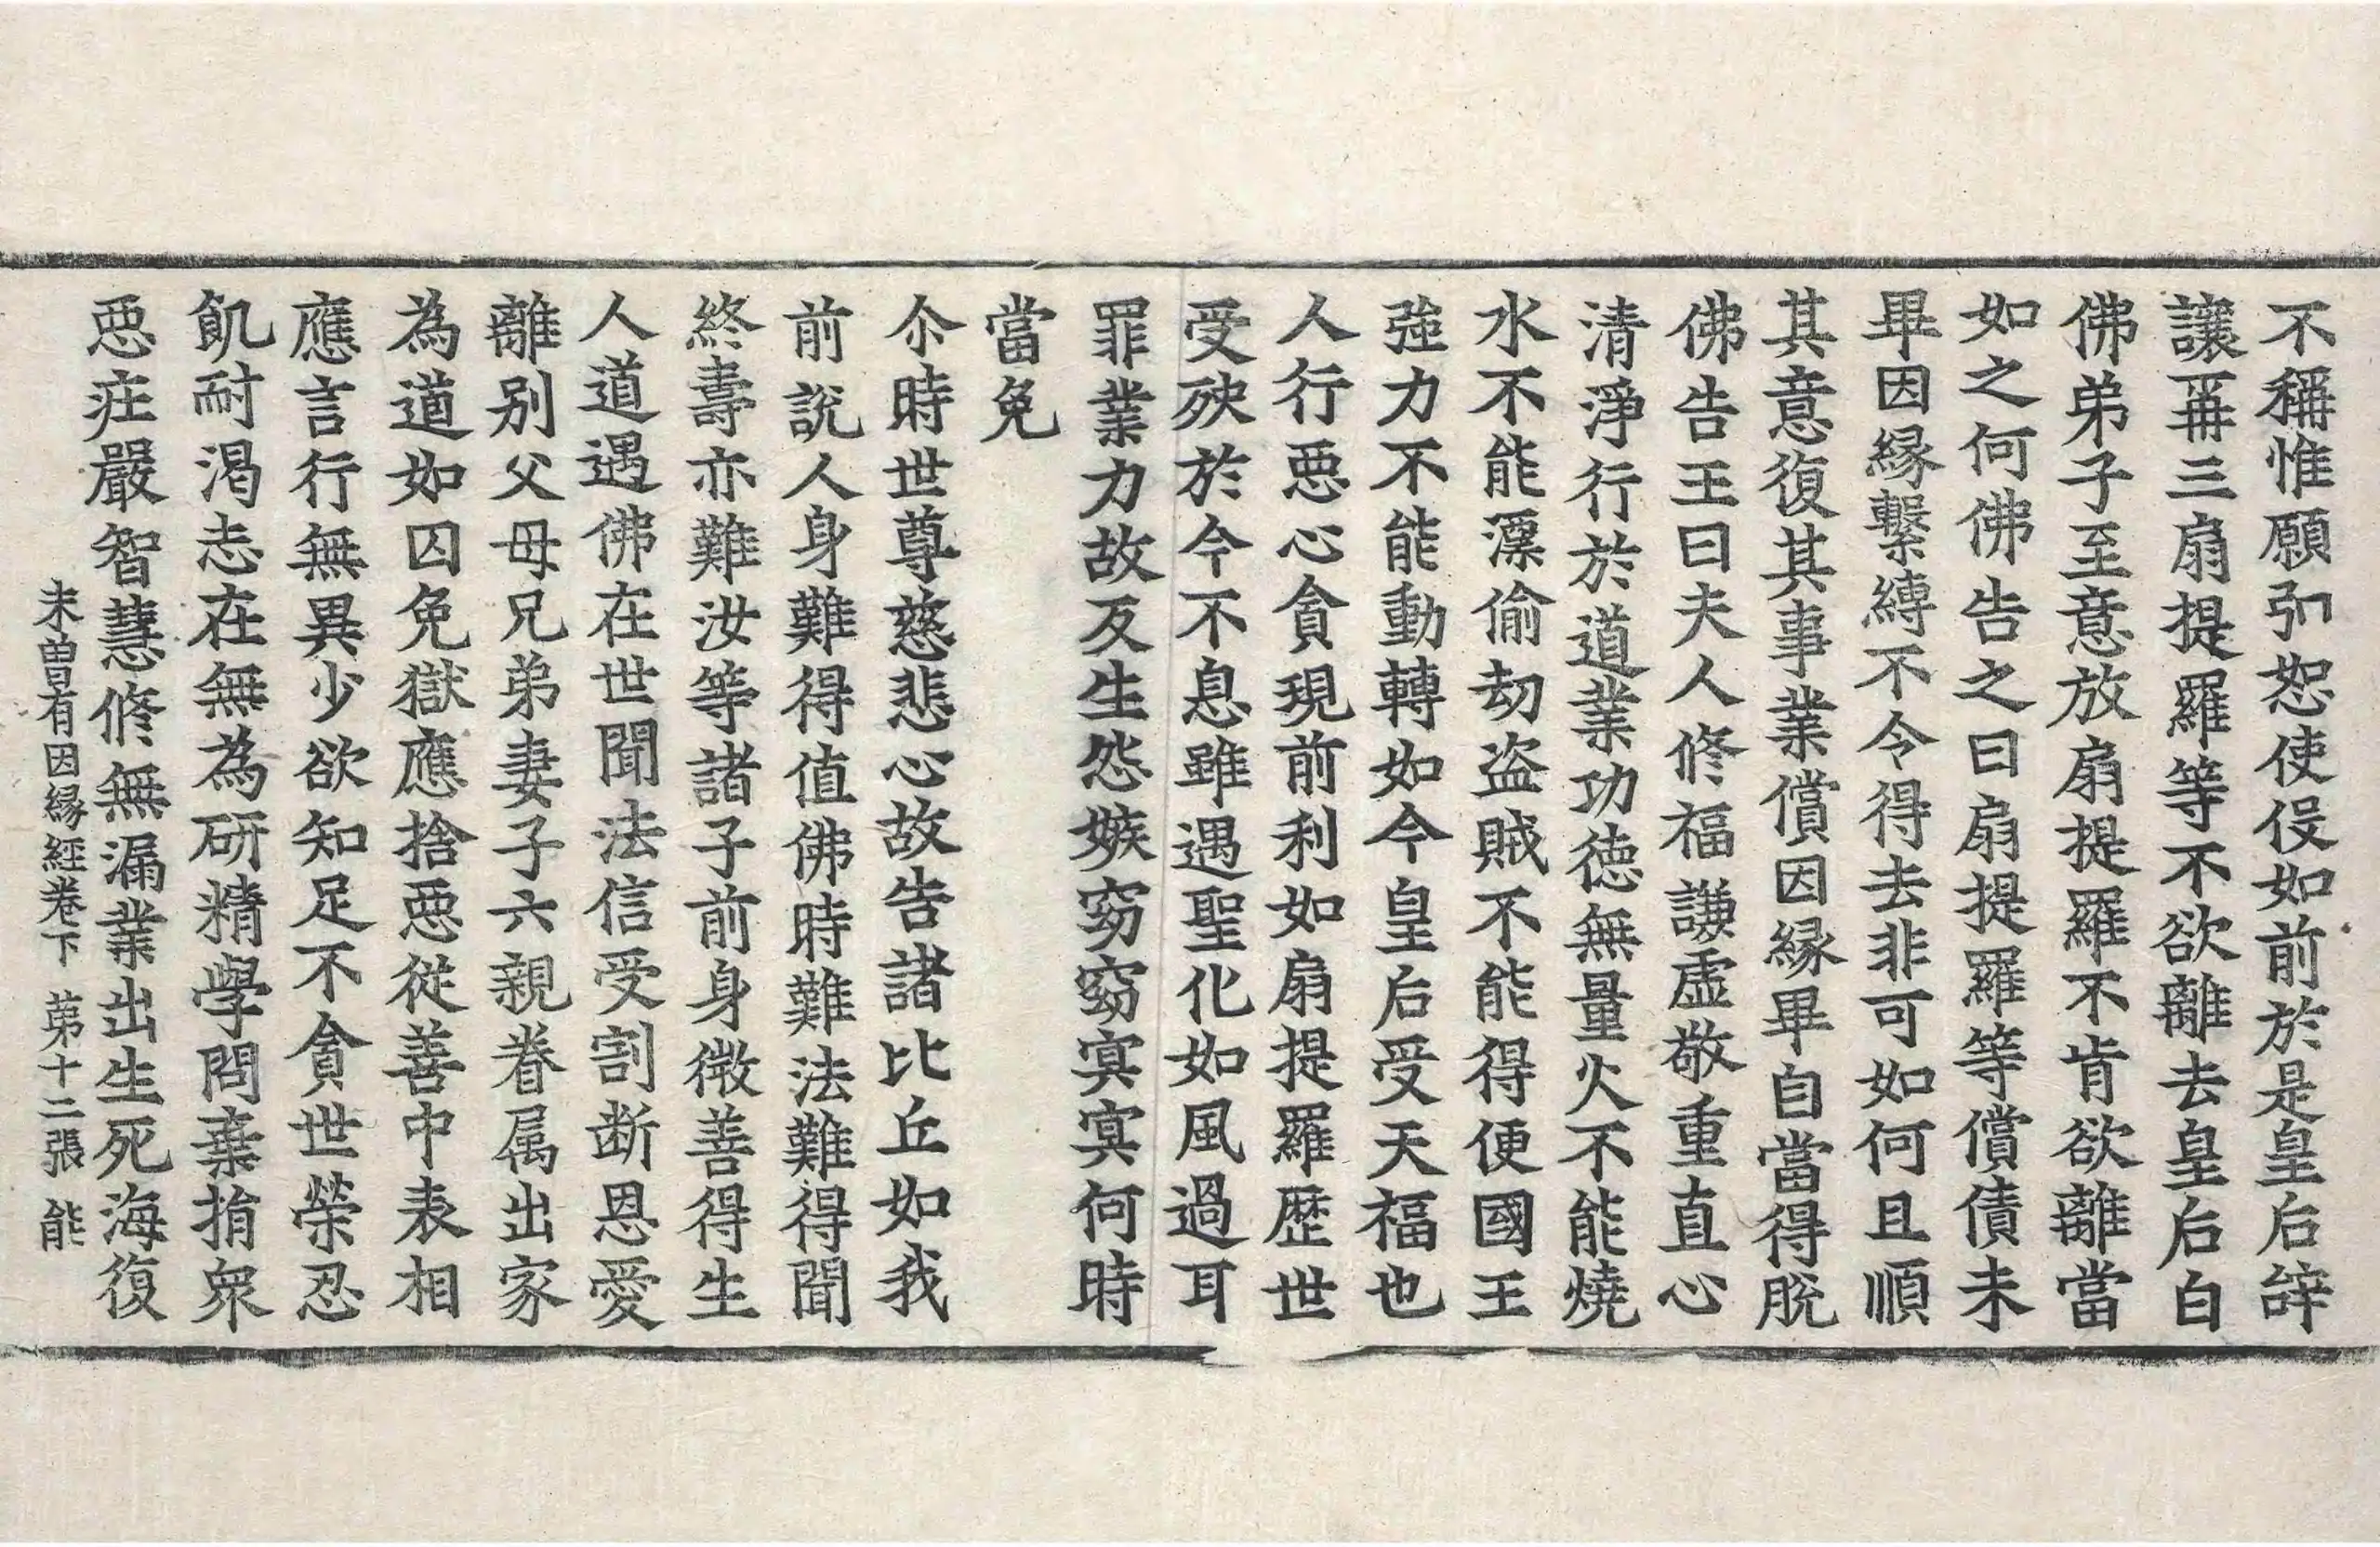 不稱惟願弘恕使伇如前於是皇后辝
讓再三扇提羅等不欲離去皇后白
佛弟子至意放扇提羅不肯欲離當
如之何佛告之曰扇提羅等償債未
畢因緣繫縛不令得去非可如何且順
其意復其事業償因緣畢自當得脫
佛告王曰夫人修福謙虛敬重直心
清淨行於道業功德無量火不能燒
水不能漂偷劫盜賊不能得便國王
強力不能動轉如今皇后受天福也
人行惡心貪現前利如扇提羅歷世
受殃於今不息雖遇聖化如風過耳
罪業力故反生怨嫉窈窈冥冥何時
當免
尒時世尊慈悲心故告諸比丘如我
前說人身難得值佛時難法難得聞
終壽亦難汝等諸子前身微善得生
人道遇佛在世聞法信受割断恩愛
離别父母兄弟妻子六親眷属出家
為道如囚免獄應捨惡從善中表相
應言行無異少欲知足不貪世榮忍
飢耐渴志在無為研精學問棄捐衆
惡疘嚴智慧修無漏業出生死海復
未曾有因緣經卷下 苐十二張 能